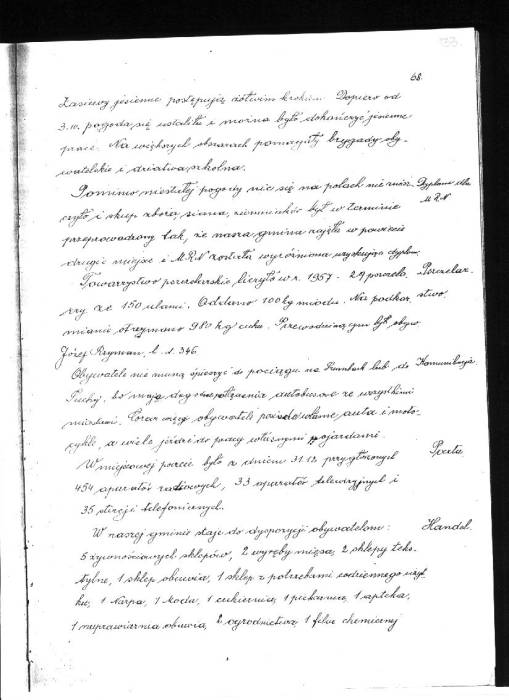 68.
Zasiewy jesienne postępują żółwim krokiem. Dopiero od
3.XI. pogoda się ustaliła i można było dokończyć jesienne
prace. Na większych obszarach pomagały brygady oby-
watelskie i dziatwa szkolna.
Pomimo niestałej pogody nic się na polach nie znisz- Dyplom dla
czyło i skup zboża, siana, ziemniaków był w terminie MRN
przeprowadzony tak, że nasza gmina zajęła w powiecie
drugie miejsce i MRN została wyróżniona uzyskując dyplom.
Towarzystwo pszczelarskie liczyło w r. 1957 - 29 pszczela- Pszczelar-
rzy ze 150 ulami. Oddano 100 kg miodu. Na podkar- stwo
mianie otrzymano 980 kg cukru. Przewodniczącym był obyw.
Józef Szyman, l. d. 346.
Obywatele nie muszą śpieszyć do pociągu na lub do Komunikacja
bo mają dogodne połączenia autobusowe ze wszystkimi
miastami. Coraz więcej obywateli posiada własne auta i moto-
cykle, a wiele jeździ do pracy własnymi pojazdami.
W miejscowej poczcie było z dniem 31.12 przygłoszonych Poczta
454 aparatów radiowych, 33 aparatów telewizyjnych i
35 stacji telefonicznych.
W naszej gminie staje do dyspozycji obywatelom: Handel.
5 żywnościowych sklepów, 2 wyręby mięsa, 2 sklepy teks-
tylne, 1 sklep obuwia, 1 sklep z potrzebami codziennego użyt-
ku, 1 Narpa, 1 Moda, 1 cukiernia, 1 piekarnia, 1 apteka,
1 naprawiarnia obuwia, 2 ogrodnictwa, 1 felur chemiczny